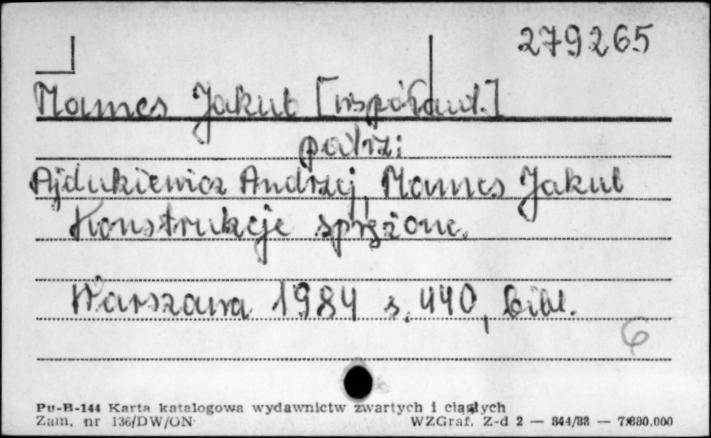 279265
Mames Jakub [współaut.]
patrz:
Ajdukiewicz Andrzej, Mames Jakub
Konstrukcje sprężone.
Warszawa 1984 s. 440, bibl.
6
Pu-B-144 Karta katalogowa wydawnictw zwartych i ciągłych
Zam. nr 136/DW/ON WZGraf. Z-d 2 — 844/83 — 7.680.000